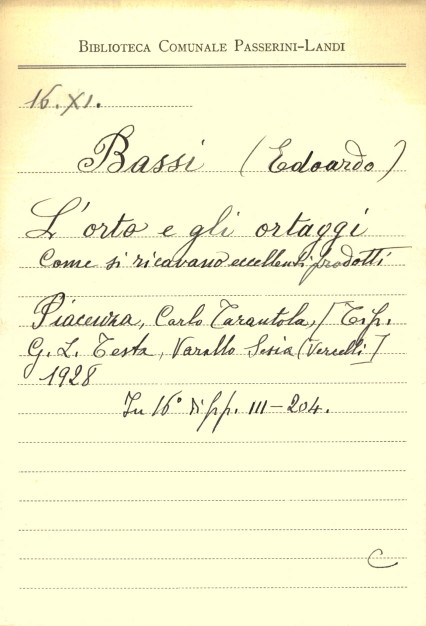 BIBLIOTECA COMUNALE PASSERINI-LANDI
16.XI.
Bassi (Edoardo)
L'orto e gli ortaggi
Come si ricavano eccellenti prodotti
Piacenza, Carlo Tarantola, [Tip.
G. L. Testa, Varallo Sesia (Vercelli]
1928
In 16° di pp. III-204.
C